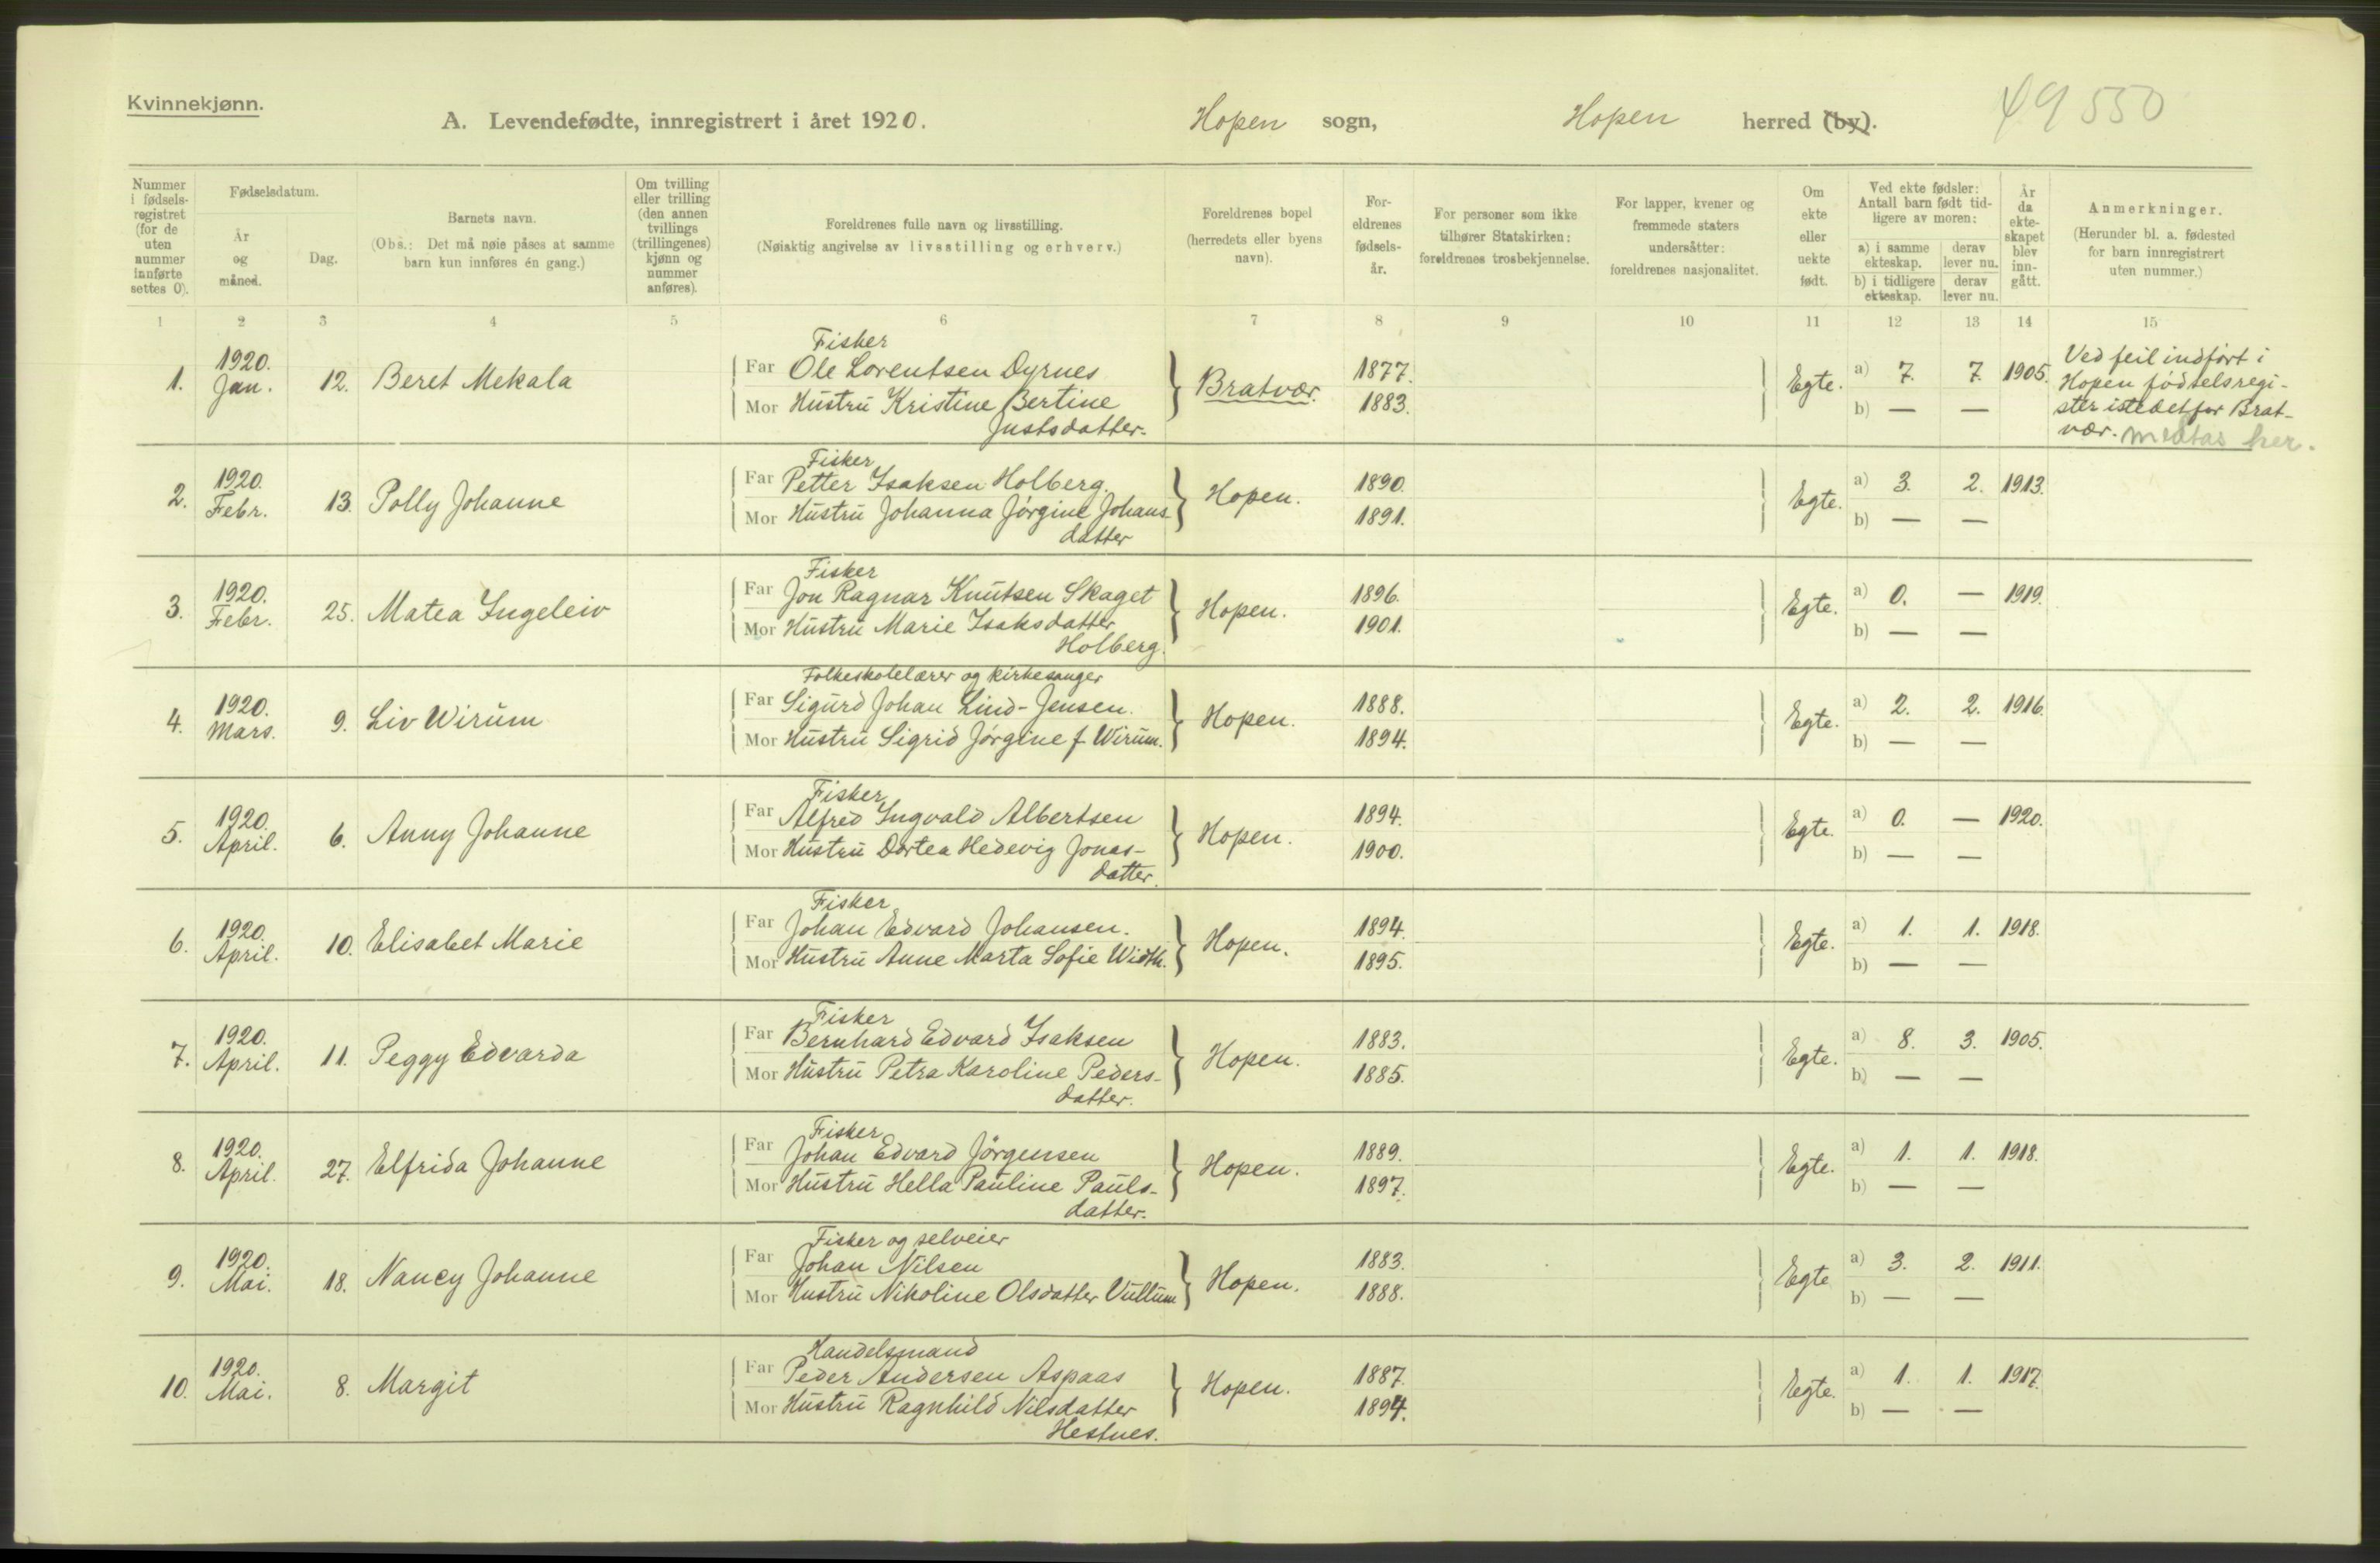 Kvinnekjønn.
A. Levendefødte, innregistrert i året 1920. Hopen sogn, Hopen herred (by). 49550
Nummer i fødsels-registret (for de uten nummer innførte settes 0).
Fødselsdatum.
År og måned.
Dag.
Barnets navn.
(Obs.: Det må nøie påses at samme barn kun innføres én gang.)
Om tvilling eller trilling (den annen tvillings (trillingenes) kjønn og nummer anføres).
Foreldrenes fulle navn og livsstilling.
(Nøiaktig angivelse av livsstilling og erhverv.)
Foreldrenes bopel (herredets eller byens navn).
For-eldrenes fødsels-år.
For personer som ikke tilhører Statskirken: foreldrenes trosbekjennelse.
For lapper, kvener og fremmede staters undersåtter: foreldrenes nasjonalitet.
Om ekte eller uekte født.
Ved ekte fødsler: Antall barn født tid-ligere av moren:
a) i samme ekteskap. derav lever nu.
b) i tidligere ekteskap. derav lever nu.
År da ekte-skapet blev inn-gått.
Anmerkninger.
(Herunder bl. a. fødested for barn innregistrert uten nummer.)
1 2 3 4 5 6 7 8 9 10 11 12 13 14 15
1. 1920. Jan. 12. Beret Mekala
Fisker
Far Ole Lorentsen Dyrnes
Mor Hustru Kristine Bertine
Justsdatter.
Bratvær. 1877. 1883. Egte. a) 7. 7. 1905.
b) — —
Ved feil indført i
Hopen fødselsregi-
ster istedetfor Brat-
vær. medtas her.
2. 1920. Febr. 13. Polly Johanne
Fisker
Far Petter Isaksen Holberg.
Mor Hustru Johanna Jørgine Johans-
datter
Hopen. 1890. 1891. Egte. a) 3. 2. 1913.
b) — —
3. 1920. Febr. 25. Matea Ingeleiv
Fisker
Far Jon Ragnar Knutsen Skaget
Mor Hustru Marie Isaksdatter
Holberg.
Hopen. 1896. 1901. Egte. a) 0. — 1919.
b) — —
4. 1920. Mars. 9. Liv Wirum
Folkeskolelærer og kirkesanger
Far Sigurd Johan Lind-Jensen.
Mor Hustru Sigrid Jørgine f Wirum.
Hopen. 1888. 1894. Egte. a) 2. 2. 1916.
b) — —
5. 1920. April. 6. Anny Johanne
Fisker
Far Alfred Ingvald Albertsen
Mor Hustru Dortea Hedevig Jonas-
datter.
Hopen. 1894. 1900. Egte. a) 0. — 1920.
b) — —
6. 1920. April. 10. Elisabet Marie
Fisker
Far Johan Edvard Johansen.
Mor Hustru Anne Marta Sofie Width.
Hopen. 1894. 1895. Egte. a) 1. 1. 1918.
b) — —
7. 1920. April. 11. Peggy Edvarda
Fisker
Far Bernhard Edvard Isaksen
Mor Hustru Petra Karoline Peders-
datter.
Hopen. 1883. 1885. Egte. a) 8. 3. 1905.
b) — —
8. 1920. April. 27. Elfrida Johanne
Fisker
Far Johan Edvard Jørgensen
Mor Hustru Hella Pauline Pauls-
datter.
Hopen. 1889. 1897. Egte. a) 1. 1. 1918.
b) — —
9. 1920. Mai. 18. Nancy Johanne
Fisker og selveier
Far Johan Nilsen
Mor Hustru Nikoline Olsdatter Vullum
Hopen. 1883. 1888. Egte a) 3. 2. 1911.
b) — —
10. 1920. Mai. 8. Margit
Handelsmand
Far Peder Andersen Aspaas
Mor Hustru Ragnhild Nilsdatter
Hestnes.
Hopen. 1887. 1894. Egte. a) 1. 1. 1917.
b) — —